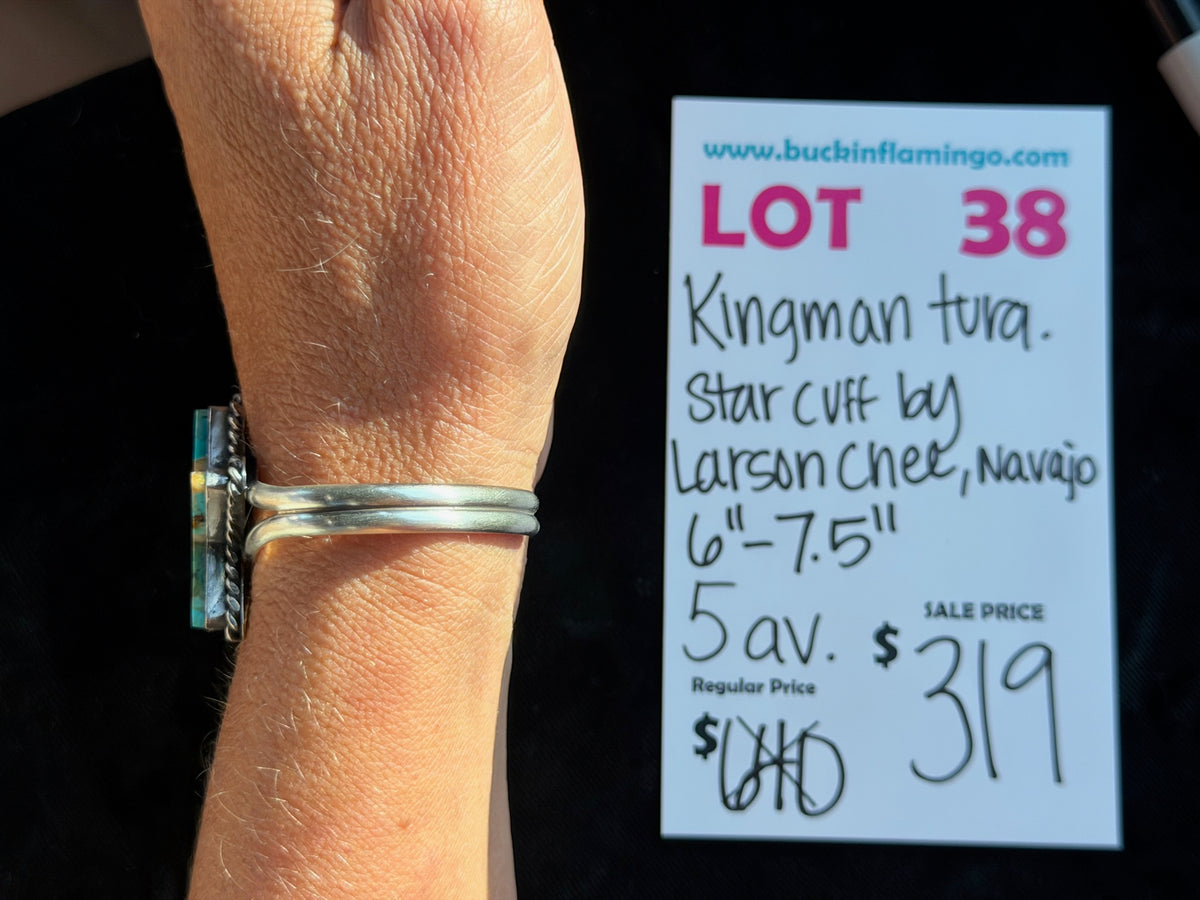 www.buckinflamingo.com
LOT 38
Kingman turq.
Star cuff by
Larson Chee, Navajo
6"-7.5"
5 av.
SALE PRICE
$319
Regular Price
$640